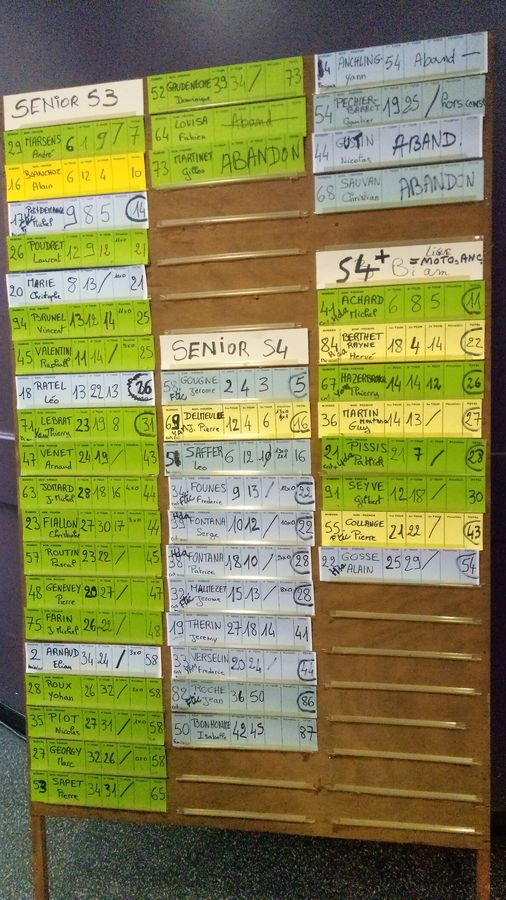 SENIOR S3
29 MARSENS André 6 1 9 / 7
16 BLANCHOZ Alain 6 12 4 10
Michel 9 8 5 14
26 POUDRET Laurent 12 9 12 21
20 MARIE Christophe 8 13 / 21
94 BRUNEL Vincent 13 12 14 25
45 VALENTIN Raphaël 11 14 / 25
18 RATEL Léo 13 22 13 26
71 LEBRAT Thierry 23 19 8 31
47 VENET Arnaud 24 19 / 43
63 J. Michel 28 18 16 44
23 FIALLON Christian 27 30 17 44
57 ROUTIN Pascal 23 22 / 45
48 GENEVEY Pierre 20 27 / 47
75 FARIN J. Michel 26 22 / 48
2 ARNAUD Elian 34 24 / 58
28 ROUX Yohan 26 32 / 58
35 PIOT Nicolas 27 31 / 58
27 GEORGY Marc 32 26 / 58
53 SAPET Pierre 34 31 / 65
52 GAUDENECHE Dominique 39 34 / 73
64 LOVISA Fabien Aband
73 MARTINET Gilles ABANDON
SENIOR S4
58 GOUGNE Jerome 2 4 3 5
DEMEULLE J. Pierre 12 4 6 16
SAFFER Leo 6 12 10 16
FOUNES Frederic 9 13 / 22
FONTANA Serge 10 12 22
38 FONTANA Patrice 18 10 / 28
MALTEZET Jerome 15 13 / 28
19 THERIN Jeremy 27 18 14 41
33 VERSELIN Frederic 20 24 / 44
82 ROCHE Jean 36 50 86
50 BONHOMME Isabelle 42 45 87
ANCHLING Yann 54 Aband —
54 PECHIER Gautier 19 25 / hors
44 Nicolas ABAND.
68 SAUVAN Christian ABANDON
S4+ = MOTO ANC
41 ACHARD Michel 6 8 5 11
84 BERTHET RAYNE Hervé 18 4 14 22
67 HAZERBROUCK Thierry 14 14 12 26
36 MARTIN Guy 14 13 / 27
21 PISSIS Patrick 21 7 / 28
91 SEYVE Gilbert 12 18 / 30
55 COLLANGE Pierre 21 22 / 43
22 GOSSE ALAIN 25 29 / 54